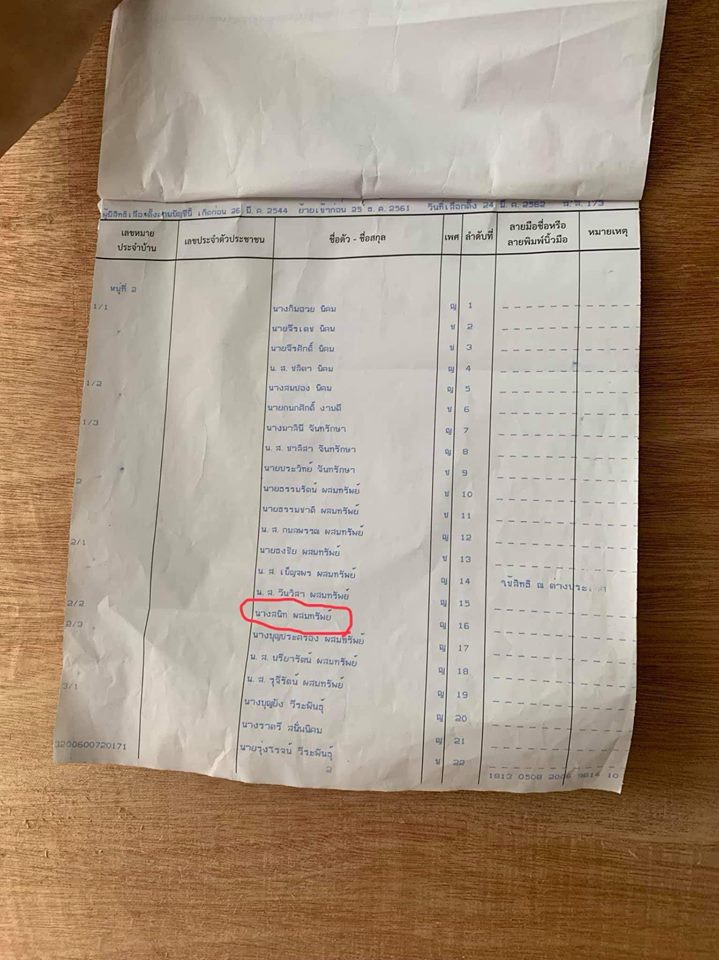 ผู้มีสิทธิเลือกตั้งตามบัญชีนี้ เกิดก่อน 26 มี. ค. 2544 ย้ายเข้าก่อน 25 ธ. ค. 2561 วันที่เลือกตั้ง 24 มี. ค. 2562 ส. ส. 173
เลขหมายประจำบ้าน เลขประจำตัวประชาชน ชื่อตัว - ชื่อสกุล เพศ ลำดับที่ ลายมือชื่อหรือลายพิมพ์นิ้วมือ หมายเหตุ
หมู่ที่ 2
1/1 นางกิมฮวย นิคม ญ 1
นายจีรเดช นิคม ช 2
นายจีรศักดิ์ นิคม ช 3
น. ส. ชลิดา นิคม ญ 4
1/2 นางสมปอง นิคม ญ 5
นายกนกศักดิ์ งามดี ช 6
1/3 นางมาลินี จันทรักษา ญ 7
น. ส. ชาลิสา จันทรักษา ญ 8
นายประวิทย์ จันทรักษา ช 9
2 นายธรรมรัตน์ ผสมทรัพย์ ช 10
นายธรรมชาติ ผสมทรัพย์ ช 11
น. ส. กมลพรรณ ผสมทรัพย์ ญ 12
2/1 นายธงชัย ผสมทรัพย์ ช 13
น. ส. เบ็ญจพร ผสมทรัพย์ ญ 14 ใช้สิทธิ ณ ต่างประเทศ
น. ส. วีนวิสา ผสมทรัพย์ ญ 15
2/2 นางสนิท ผสมทรัพย์ ญ 16
2/3 นางบุญประครอง ผสมทรัพย์ ญ 17
น. ส. ปรียารัตน์ ผสมทรัพย์ ญ 18
น. ส. รุจีรัตน์ ผสมทรัพย์ ญ 19
3/1 นางบุญยัง วีระพันธุ์ ญ 20
นางราตรี สนั่นนิคม ญ 21
นายรุ่งโรจน์ วีระพันธุ์ ช 22
3200600720171 2 1813 0508 2006 9814 10